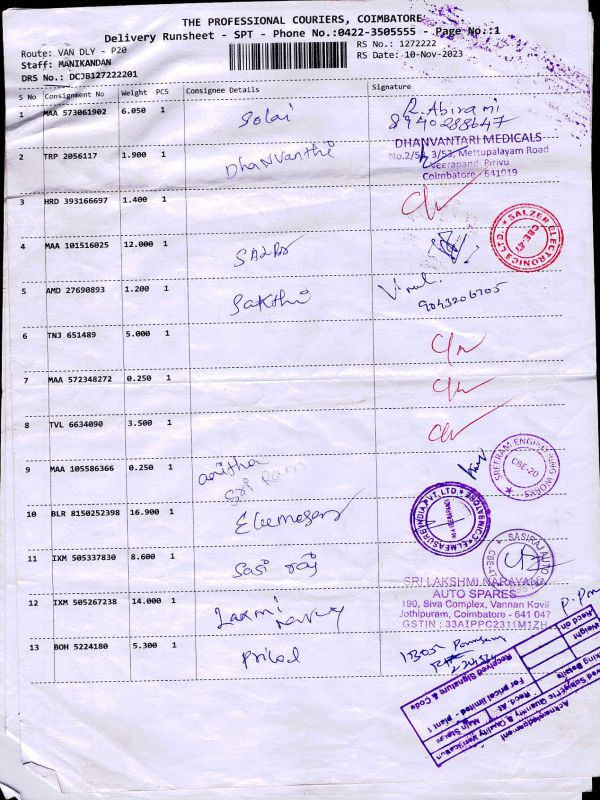 THE PROFESSIONAL COURIERS, COIMBATORE
Delivery Runsheet - SPT - Phone No.:0422-3505555 - Page No.:1
Route: VAN DLY - P20
RS No.: 1272222
Staff: MANIKANDAN
RS Date: 10-Nov-2023
DRS No.: DCJB127222201
S No Consignment No Weight PCS Consignee Details Signature
1 MAA 573061902 6.050 1 Solai R. Abirami
8940288647
2 TRP 2056117 1.900 1 Dhanvanthi DHANVANTARI MEDICALS
3/53, Mettupalayam Road
Veerapandi Pirivu
Coimbatore - 641019
3 HRD 393166697 1.400 1
SALZER ELECTRONICS LTD. CBE-47
4 MAA 101516025 12.000 1
5 AMD 27690893 1.200 1 Sakthi
9043206705
6 TNJ 651489 5.000 1
7 MAA 572348272 0.250 1
8 TVL 6634090 3.500 1
SREERAM ENGINEERING WORKS CBE-20
9 MAA 105586366 0.250 1 anitha
Sri Ram
10 BLR 8150252398 16.900 1
11 IXM 505337830 8.600 1 Sasi raj
SRI LAKSHMI NARAYANA
AUTO SPARES
12 IXM 505267238 14.000 1 Laxmi
190, Siva Complex, Vannan Kovil
Jothipuram, Coimbatore - 641 047
GSTIN : 33AIPPC2311M1ZH
13 BOH 5224180 5.300 1 Pricol
Received Signature & Code
For pricol limited - plant 1
Main Stores
Recd. At:
Weight
Recd on
Acknowledgement